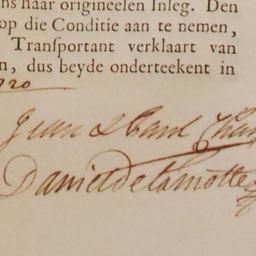 ns haar origineelen Inleg. Den
op die Conditie aan te nemen,
Transportant verklaart van
n, dus beyde onderteekent in
720
Jean & Paul Cha
Daniel de la motte